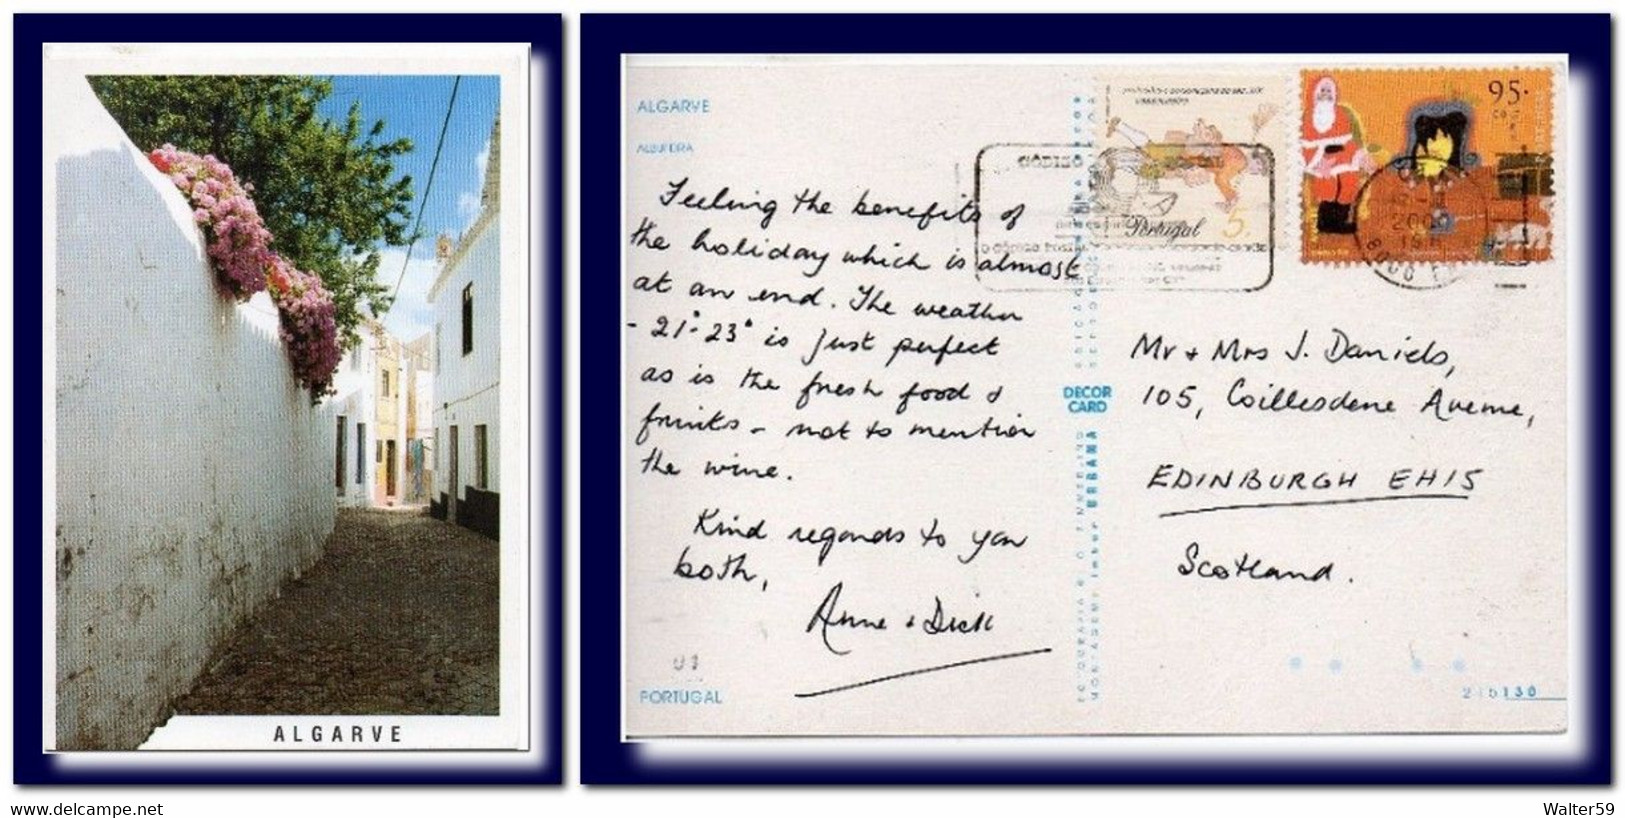 ALGARVE
ALGARVE
ALBUFEIRA
Feeling the benefits of
the holiday which is almost
at an end. The weather
- 21°-23° is just perfect
as is the fresh food &
fruits - not to mention
the wine.
Kind regards to you
both,
Anne & Dick
01
PORTUGAL
DECOR
CARD
Portugal 5.
CÓDIGO POSTAL
95.
Mr + Mrs J. Daniels,
105, Coillesdene Avenue,
EDINBURGH EH15
Scotland.
delcampe.net
Walter59